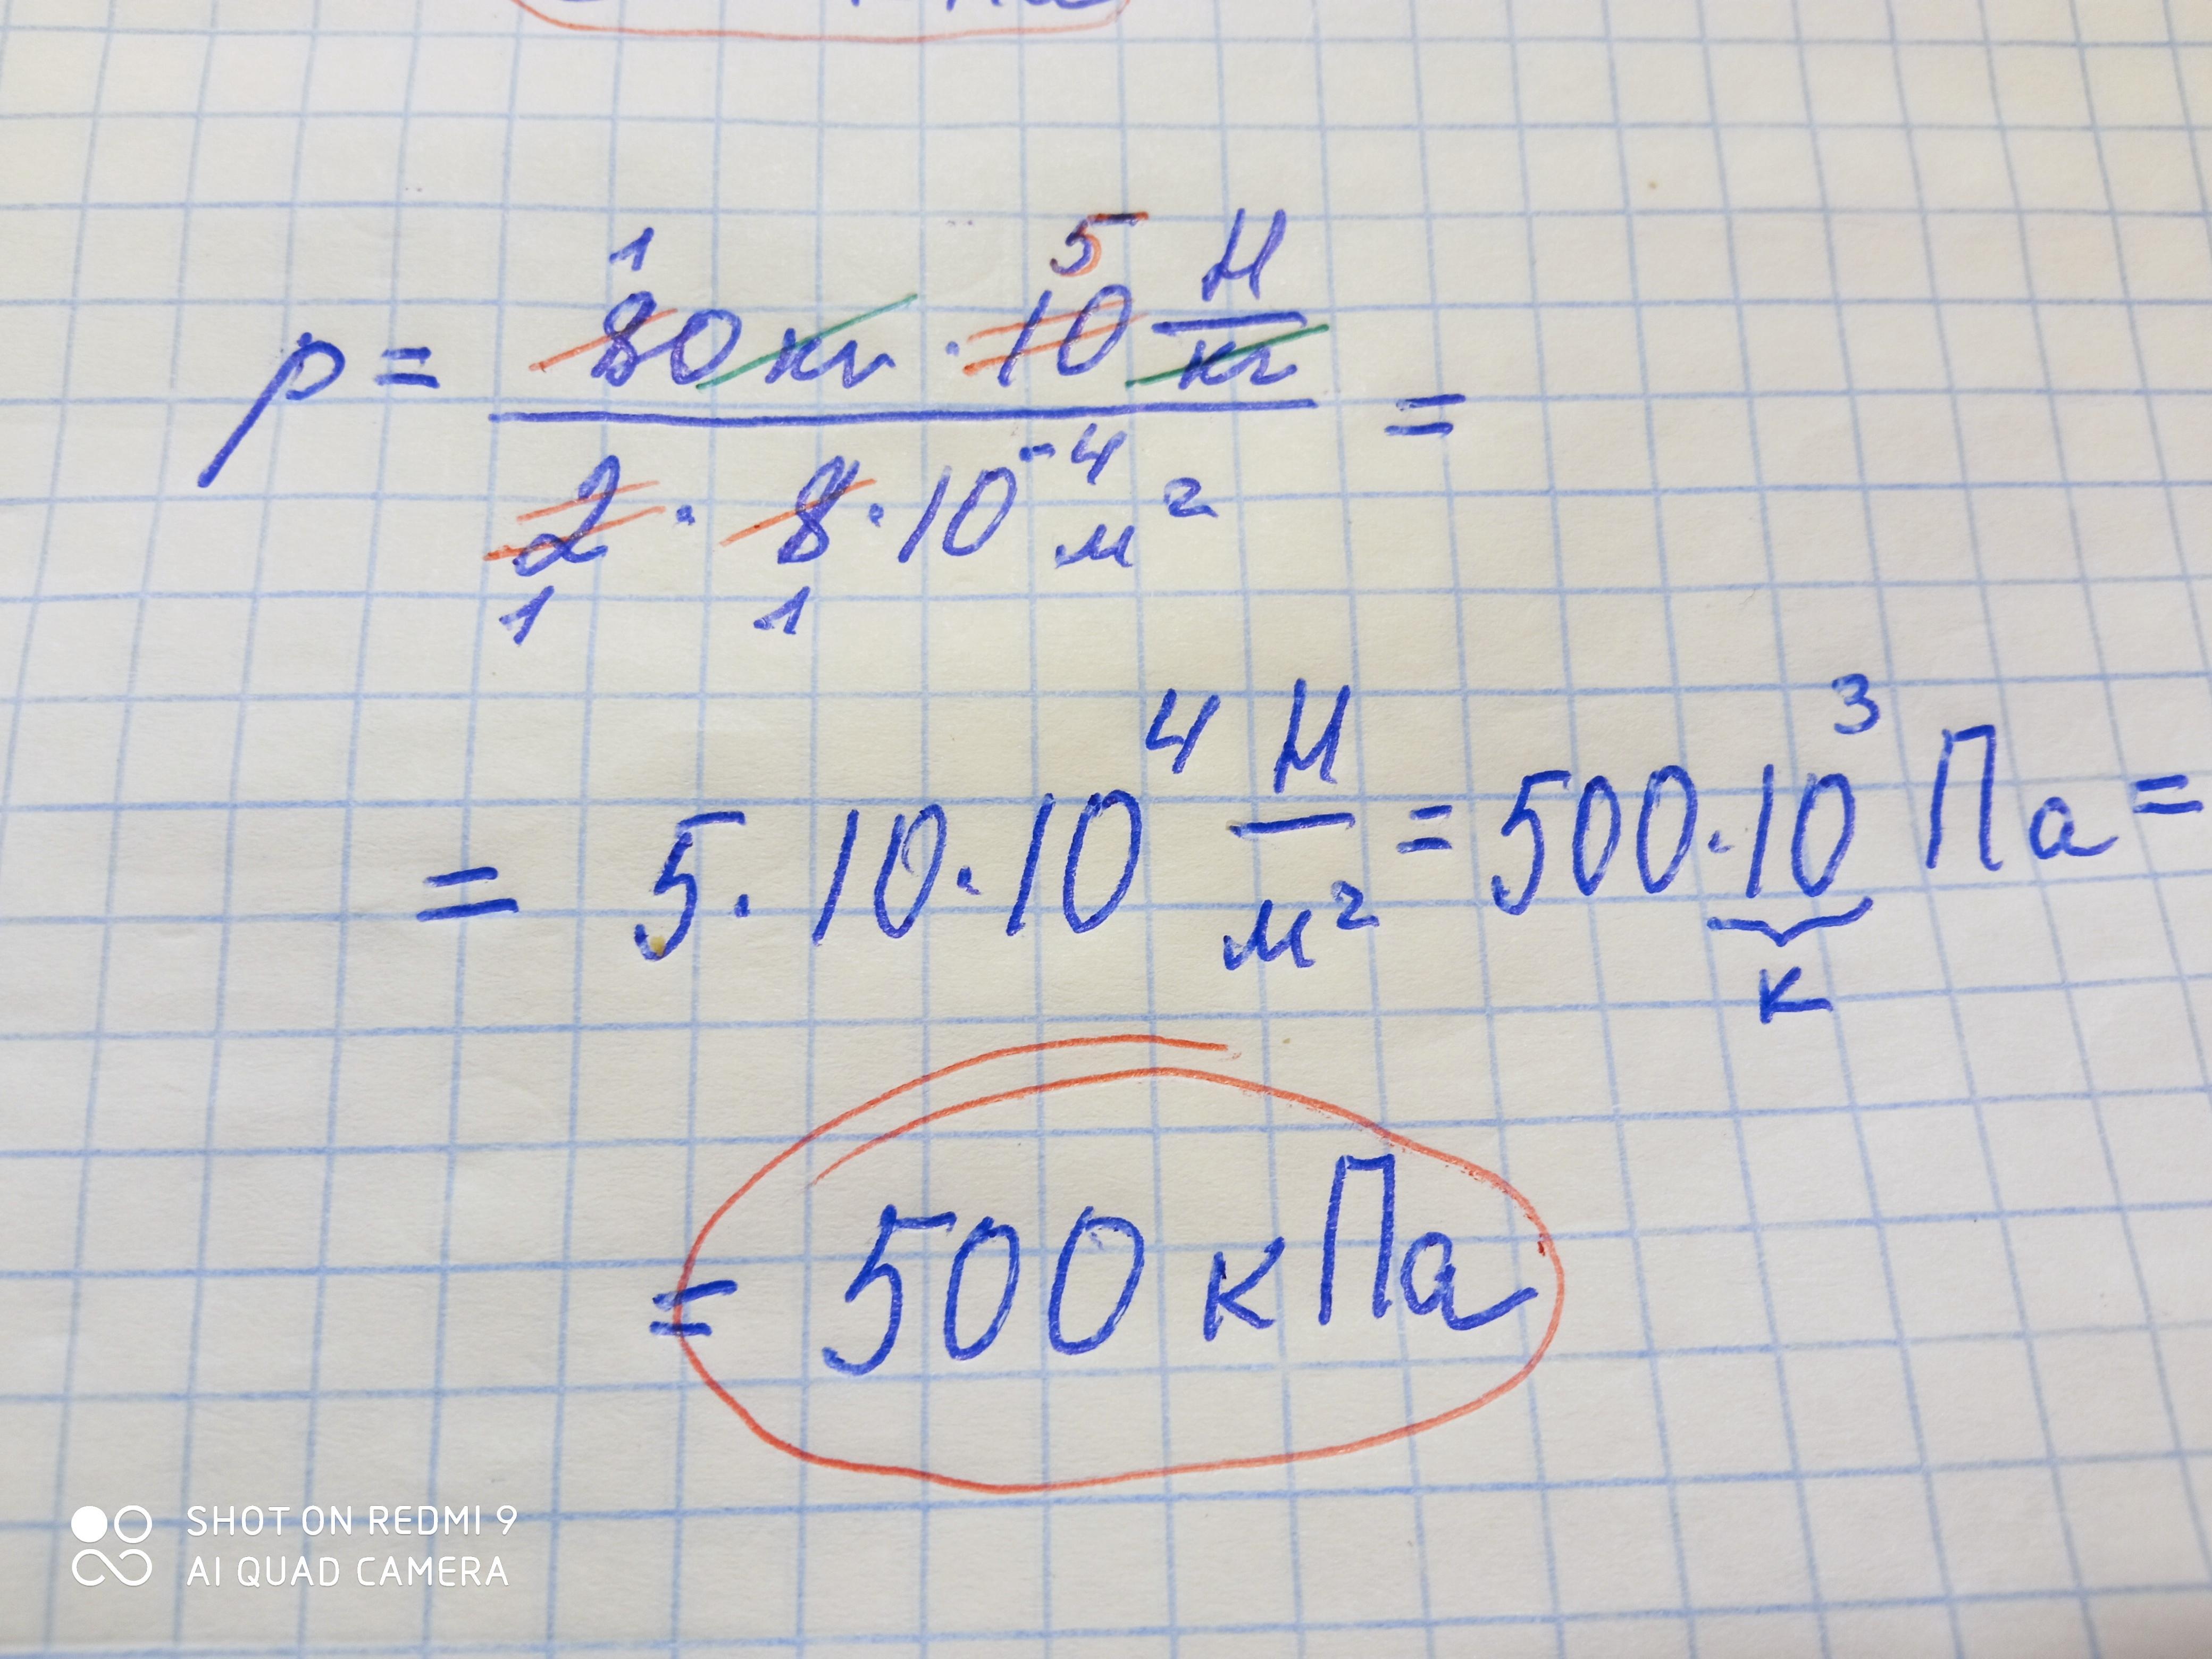 1 5
p = 80 кг · 10 Н/кг =
2 · 8 · 10⁻⁴ м²
1 1
= 5 · 10 · 10⁴ Н/м² = 500 · 10³ Па =
к
= 500 кПа
SHOT ON REDMI 9
AI QUAD CAMERA